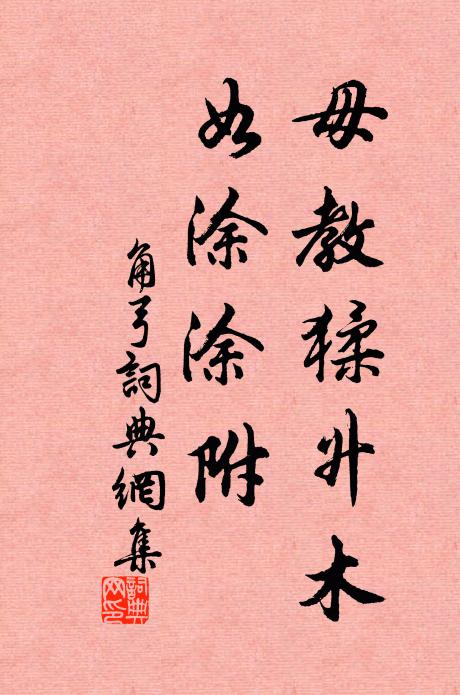 毋教猱升木
如涂涂附
角弓詞典網集
詞典网印